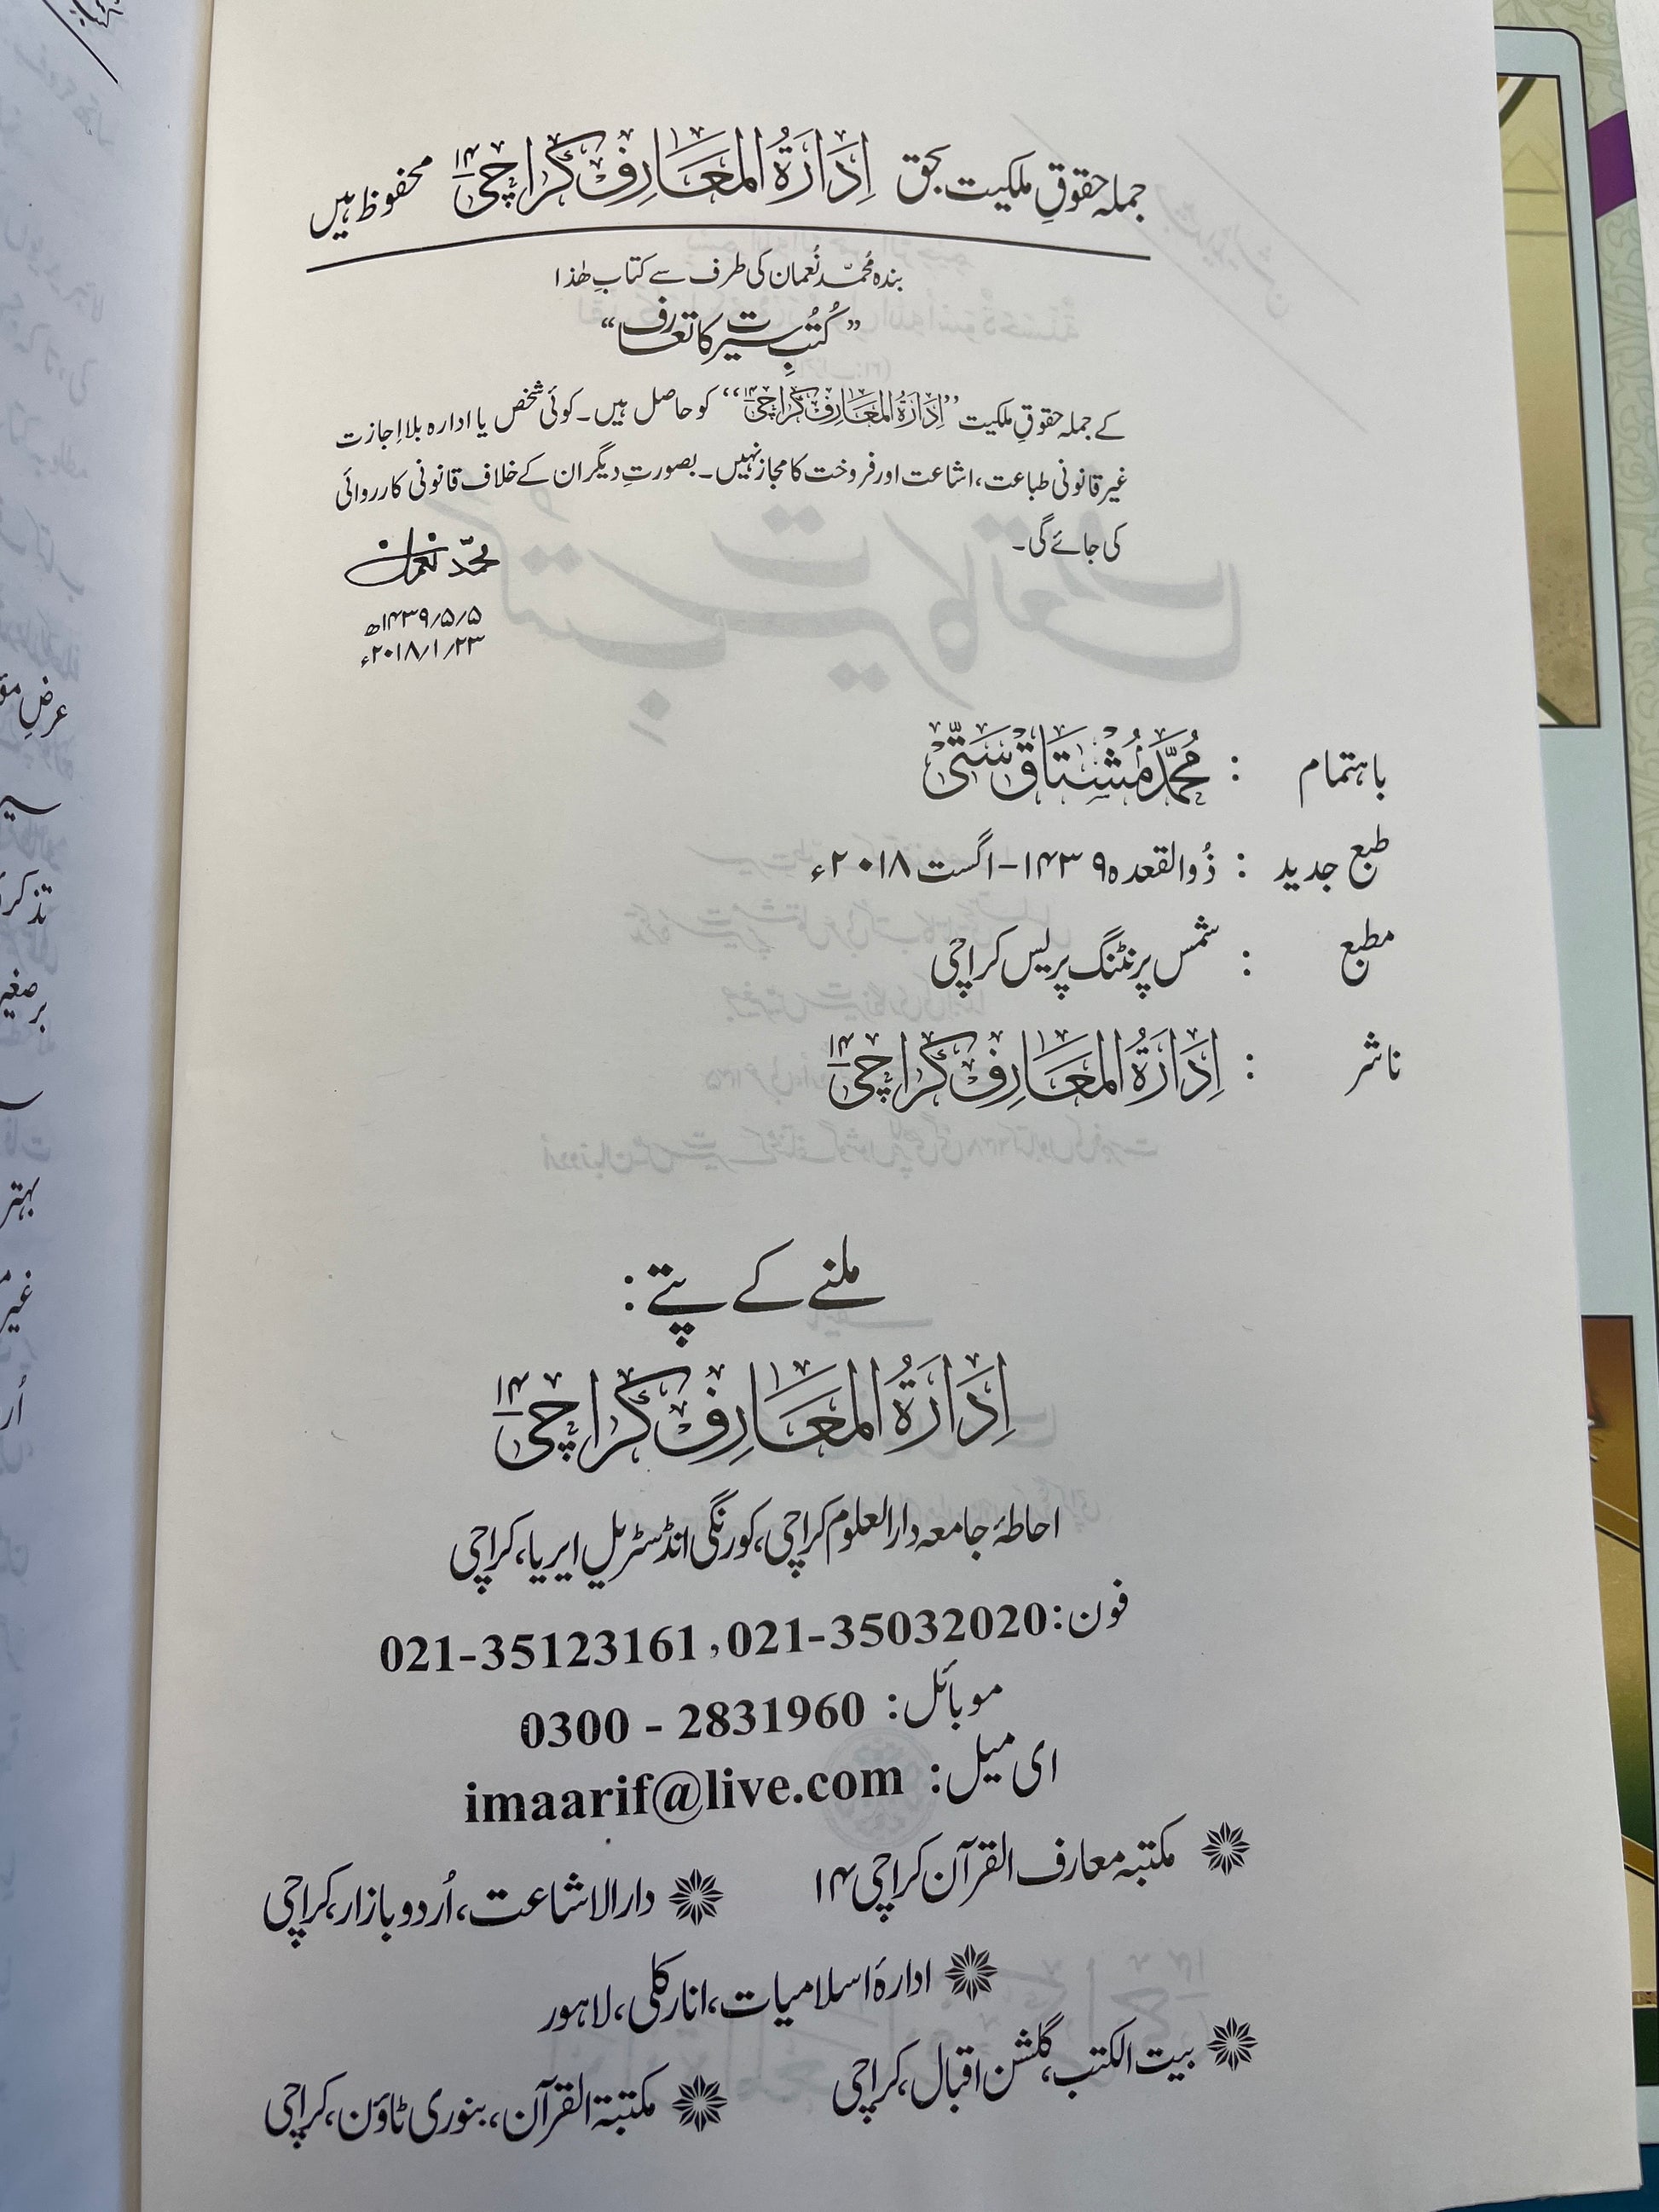 جملہ حقوقِ ملکیت بحق اِدَارَةُ المَعَارِف کراچی ۱۴ محفوظ ہیں
بندہ محمّد نُعمان کی طرف سے کتابِ ھٰذا
”کُتبِ سیرت کا تعارف“
کے جملہ حقوقِ ملکیت ”اِدَارَةُ المَعَارِف کراچی ۱۴“ کو حاصل ہیں۔ کوئی شخص یا ادارہ بلا اجازت
غیر قانونی طباعت، اشاعت اور فروخت کا مجاز نہیں۔ بصورتِ دیگر ان کے خلاف قانونی کارروائی
کی جائے گی۔
محمّد نعمان
۱۴۳۹/۵/۵ھ
۲۰۱۸/۱/۲۳ء
باہتمام : مُحَمَّد مُشتَاق سَتِّی
طبع جدید : ذُوالقعدہ ۱۴۳۹ - اگست ۲۰۱۸ء
مطبع : شمس پرنٹنگ پریس کراچی
ناشر : اِدَارَةُ المَعَارِف کراچی ۱۴
ملنے کے پتے:
اِدَارَةُ المَعَارِف کراچی ۱۴
احاطۂ جامعہ دارالعلوم کراچی، کورنگی انڈسٹریل ایریا، کراچی
فون: 021-35123161, 021-35032020
موبائل: 0300 - 2831960
ای میل: imaarif@live.com
مکتبہ معارف القرآن کراچی ۱۴
دارالاشاعت، اُردو بازار، کراچی
ادارۂ اسلامیات، انارکلی، لاہور
بیت الکتب، گلشن اقبال، کراچی
مکتبۃ القرآن، بنوری ٹاؤن، کراچی